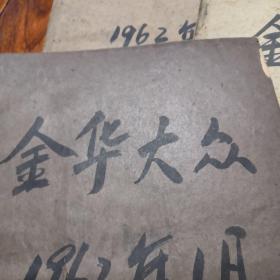 1962年
金
金华大众
1962年1月